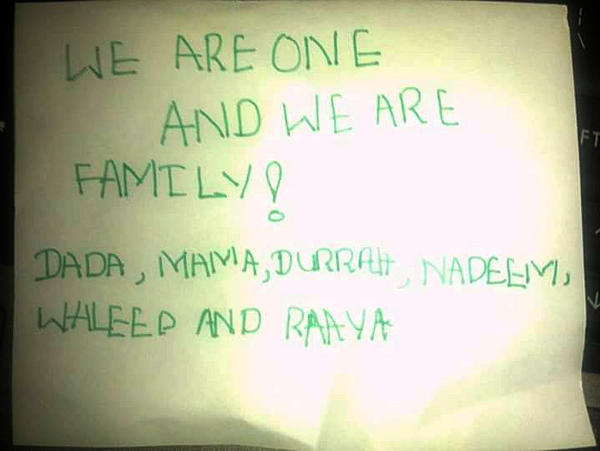 WE ARE ONE
AND WE ARE
FAMILY!
DADA, MAMA, DURRAH, NADEEM,
WALEED AND RAAYA
FT